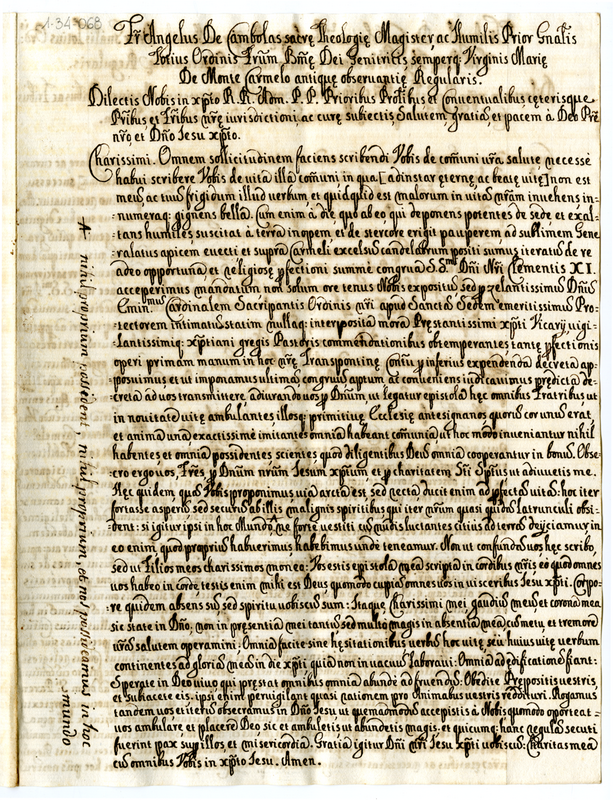 1-34-068
Fr. Angelus De Cambolas sacrę Theologię Magister, ac Humilis Prior Gnalis
Totius Ordinis Frum Bmę Dei Genitricis semperq; Virginis Marię
De Monte Carmelo antiquę observantię Regularis.
Dilectis Nobis in xpto R.R. Adm. P.P. Prioribus Prolibus et Conventualibus cęterisque
Pribus et Fribus nrę iurisdictioni, ac curę subiectis, Salutem, gratia, et pacem à Deo Pre
nro, et Dno Iesu xpto.
Charissimi. Omnem sollicitudinem faciens scribendi Vobis de comuni vra salute necesse
habui scribere Vobis de vita illa comuni in qua [ad instar ęternę, ac beatę vitę] non est
meus, ac tuus frigidum illud verbum et quidquid est malorum in vita nram invehens in-
numeraq; gignens bella. Cum enim à die quo ab eo qui deponens potentes de sede et exal-
tans humiles suscitat à terra inopem et de stercore erigit pauperem ad sublimem Gene
ralatus apicem evecti et supra Carmeli excelsu candelabrum positi sumus iteratis de re
adeo opportuna et religiosę pfectioni summè congrua S.Smi Dni Nri Clementis XI.
acceperimus mandatum non solum ore tenus Nobis expositu sed p zelantissimu Dnu
Eminmus Cardinalem Sacripantis Ordinis nri apud Sancta Sedem emeritissimu Pro-
tectorem intimatu statim nullaq; interposita mora Pręstantissimi xpti Vicarij vigi-
lantissimiq; xptiani gregis Pastoris commendationibus obtemperantes tantę pfectionis
operi primam manum in hoc nrę Transpontinę Cntu p inferius expendenda decreta ap-
posuimus et ut imponamus ultima congruu aptum ac conveniens iudicavimus predicta de-
creta ad vos transmittere, adiurando vos p Dnum, ut legatur epistola hęc omnibus Fratribus, ut
in novitate vitę ambulantes illosq; primitivę Ecclesię antesignanos quorum cor unu erat
et anima una exactissimè imitantes omnia habeant comunia ut hoc modo inveniantur nihil
habentes et omnia possidentes scientes quod diligentibus Deus omnia cooperantur in bonu. Obse-
cro ergo vos, Frės p Dnum nrum Iesum xptum et p charitatem Sti Spiritus ut adiuvetis me.
Hęc quidem qua Vobis proponimus via arcta est, sed recta ducit enim ad pfecta vita: hoc iter
fortasse asperu sed securu ab illis malignis spiritibus qui iter nrum quasi quidam latrunculi obsi-
dent: si igitur ipsi in hoc Mundo ne forte vestiti cu nudis luctantes citius ad terra deijciamur in
eo enim quod propriu habuerimus habebimus unde teneamur. Non ut confunda vos hęc scribo,
sed ut filios meos charissimos moneo: Vos estis epistola mea scripta in cordibus nris eo quod omnes
vos habeo in corde, testis enim mihi est Deus quomodo cupia omnes vos in visceribus Iesu xpti. Corpo-
re quidem absens su sed spiritu vobiscu sum: Itaque Charissimi mei gaudiu meu et corona mea
sic state in Dno, non in pręsentia mei tantu sed multo magis in absentia mea cu metu et tremore
vra salutem operamini: Omnia facite sine hęsitationibus verbu hoc vitę, seu huius vitę verbum
continentes ad gloria mea in die xpti quia non in vacuu laboravi: Omnia ad ędificatione fiant:
Sperate in Deo vivo qui pręstat omnibus omnia abundè ad fruendu: Obedite Prępositis vestris,
et subiacete eis. ipsi enim pervigilant quasi rationem pro Animabus vestris reddituri. Rogamus
tandem vos et iteru obsecramus in Dno Iesu ut quemadmodu accepistis à Nobis quomodo oporteat
vos ambulare et placere Deo sic et ambuletis ut abundetis magis. et quicumq; hanc regula secuti
fuerint pax sup illos et misericordia. Gratia igitur Dni nri Iesu xpti vobiscu: Charitas mea
cu omnibus Vobis in xpto Iesu. Amen.
nihil proprium possident, nihil proprium et nos possideamus in hoc
mundo